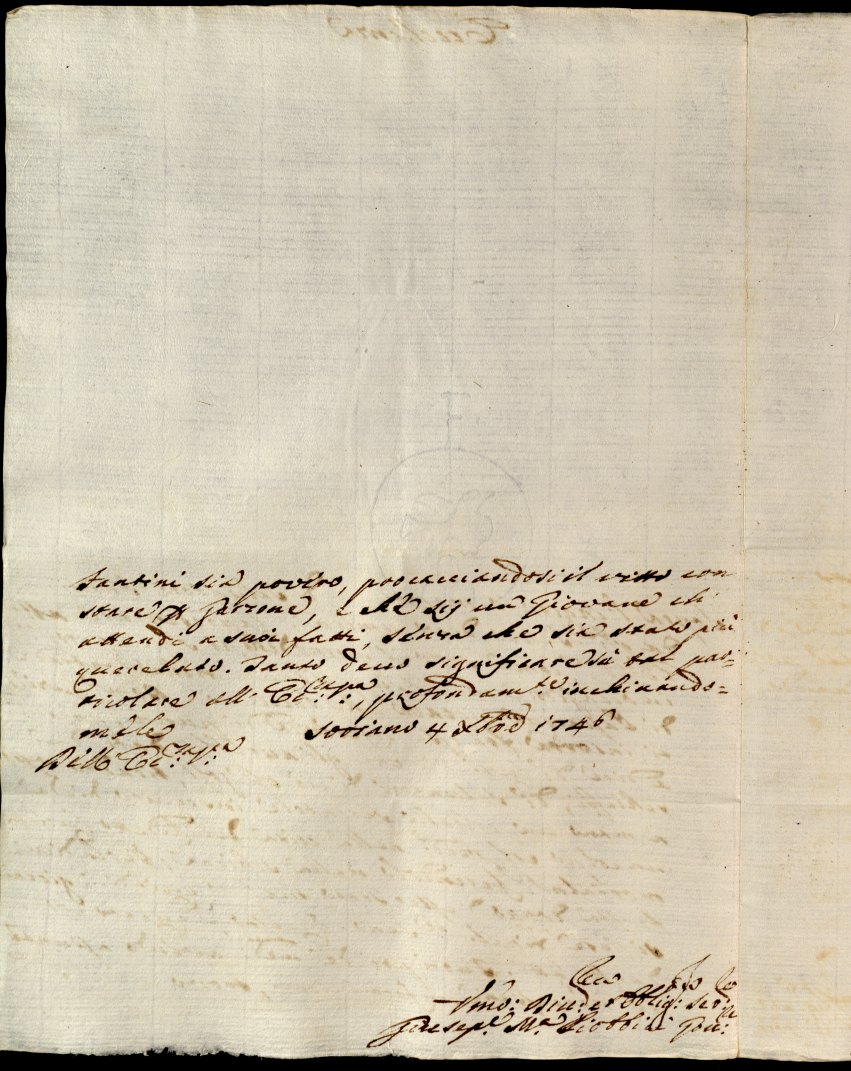 Santini sia povero, procacciandosi il vitto con
stare p garzone, e che sij un Giovane ch'
attendi a suoi fatti, senza che sia stato più
querelato. Tanto devo significare sù tal par=
ticolare all' Ecc.za V.ra, profondam.te inchinando=
mele
Soriano 4 Xbre 1746
Dell' Ecc.za V.ra
Umo: Div: ed Obblig: Ser:
Giusep.e M.a Gov: